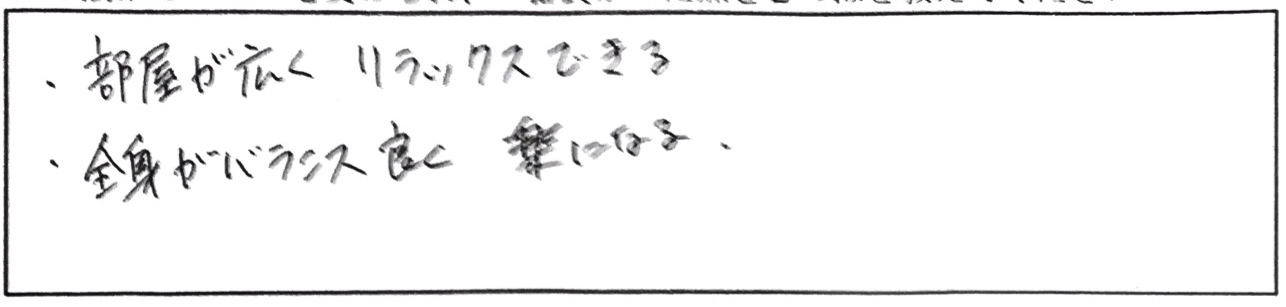 ・部屋が広く リラックスできる
・全身がバランス良く 楽になる、